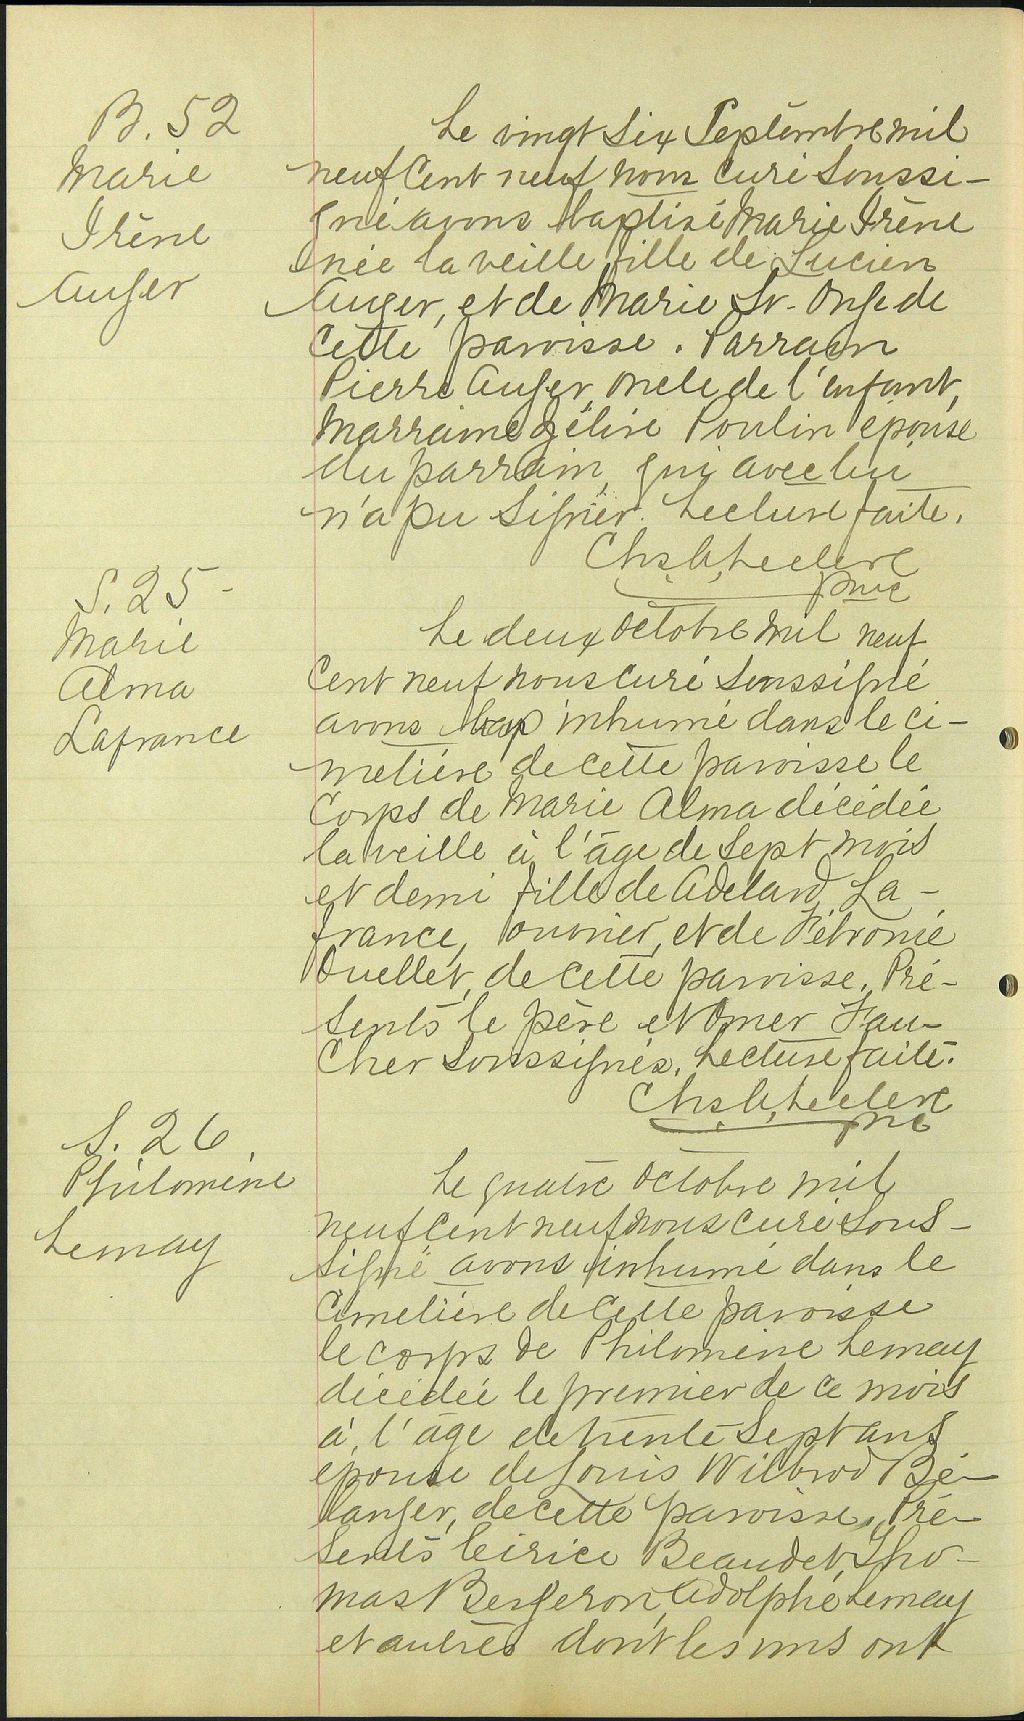 B. 52
Marie
Irène
Auger
Le vingt six Septembre mil
neuf Cent neuf nous curé soussi-
gné avons baptisé Marie Irène
née la veille fille de Lucien
Auger, et de Marie St-Onge de
cette paroisse. Parrain
Pierre Auger, oncle de l'enfant,
Marraine Zélire Poulin épouse
du parrain, qui avec lui
n'a pu signer. Lecture faite.
Chs H. Leclerc
ptre
S. 25-
Marie
Alma
Lafrance
Le deux octobre mil neuf
Cent neuf nous curé soussigné
avons bap inhumé dans le ci-
metière de cette paroisse le
Corps de Marie Alma décédée
la veille à l'âge de sept mois
et demi fille de Adelard La-
france, ouvrier, et de Pétronie
Ouellet, de cette paroisse. Pré-
sents le père et Omer Fau-
Cher soussignés. Lecture faite.
Chs H. Leclerc
ptre
S. 26
Philomène
Lemay
Le quatre octobre mil
neuf Cent neuf nous curé sous-
signé avons inhumé dans le
Cimetière de cette paroisse
le corps de Philomène Lemay
décédée le premier de ce mois
à l'âge de trente sept ans
épouse de Louis Wilbrod Bé-
langer, de cette paroisse. Pré-
sents Beaudet, Tho-
mas Bergeron, Adolphe Lemay
et autres dont les uns ont